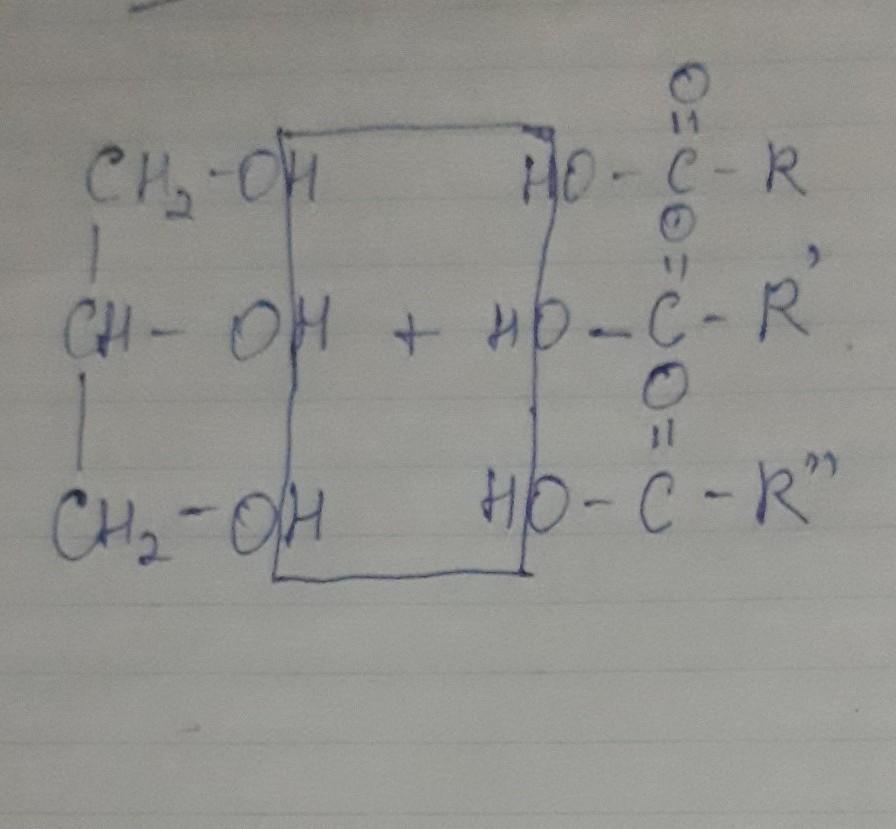 O
=
CH₂-OH HO-C-R
| O
=
CH-OH + HO-C-R'
| O
=
CH₂-OH HO-C-R''